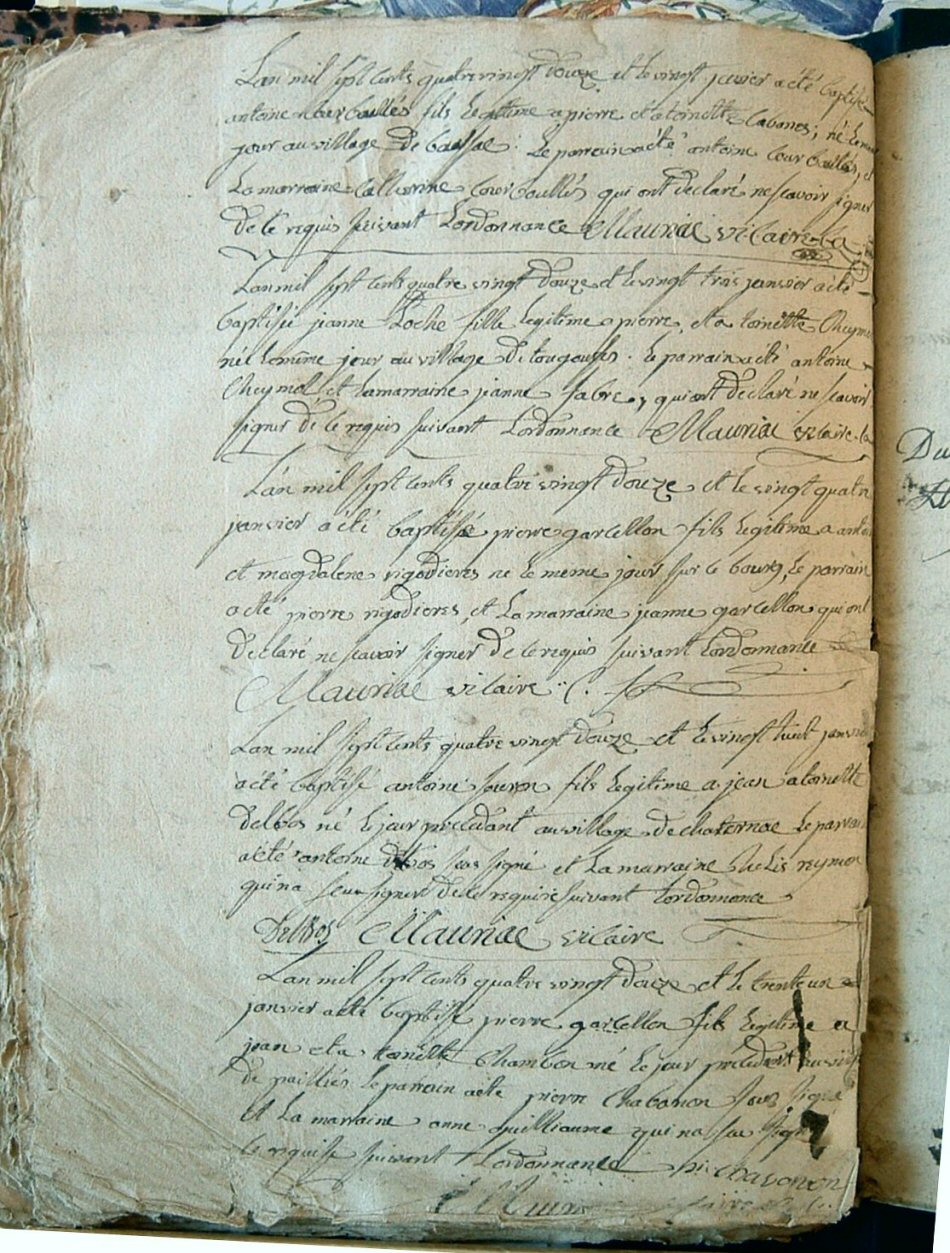 Lan mil sept cents quatre vingt douze et le vingt janvier a été baptisé
antoine courboullés fils legitime a pierre et a toinette Cabanes; né le meme
jour au village de : Le parrain a eté antoine Courboullés, et
La marraine Catherine Courboullés qui ont declaré ne scavoir signer
de ce requis suivant Lordonnance Mauriac vicaire
Lan mil sept cents quatre vingt douze et le vingt trois janvier a eté
baptisée jeanne Loche fille legitime a pierre, et a toinette Cheymol
née le meme jour au village de tougouses. Le parrain a eté antoine
Cheymol et la marraine jeanne fabre, qui ont déclaré ne scavoir
signer de ce requis suivant Lordonnance Mauriac vicaire
Lan mil sept cents quatre vingt douze et le vingt quatre
janvier a eté baptisé pierre garcellon fils legitime a
et magdalene rigodieres ne le meme jours sur le bourg, Le parrain
a eté pierre rigodieres, et La marraine jeanne garcellon qui ont
declaré ne scavoir signer de ce requis suivant Lordonnance
Mauriac vicaire
Lan mil sept cents quatre vingt douze et le vingt huit janvier
a eté baptisé antoine fils legitime a jean a toinette
delbos né le jour precedant au village de chaternac Le parrain
a eté antoine delbos sous signé et La marraine reymon
qui na sceu signer de ce requise suivant Lordonnance
Delbos Mauriac vicaire
Lan mil sept cents quatre vingt douze et le trente un
janvier a eté baptisé pierre garcellon fils legitime a
jean et a toinette Chambon né le jour precedant au
de pailliés Le parrain a eté pierre Chabanon sous signé
et La marraine anne guilliaume qui na sceu
requise suivant Lordonnance chavonon
Du